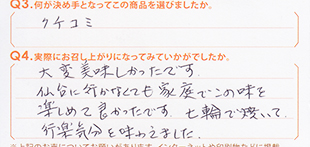 Q3.何が決め手となってこの商品を選びましたか。
クチコミ
Q4.実際にお召し上がりになってみていかがでしたか。
大変美味しかったです。
仙台に行かなくても家庭でこの味を
楽しめて良かったです。七輪で焼いて、
行楽気分を味わえました。